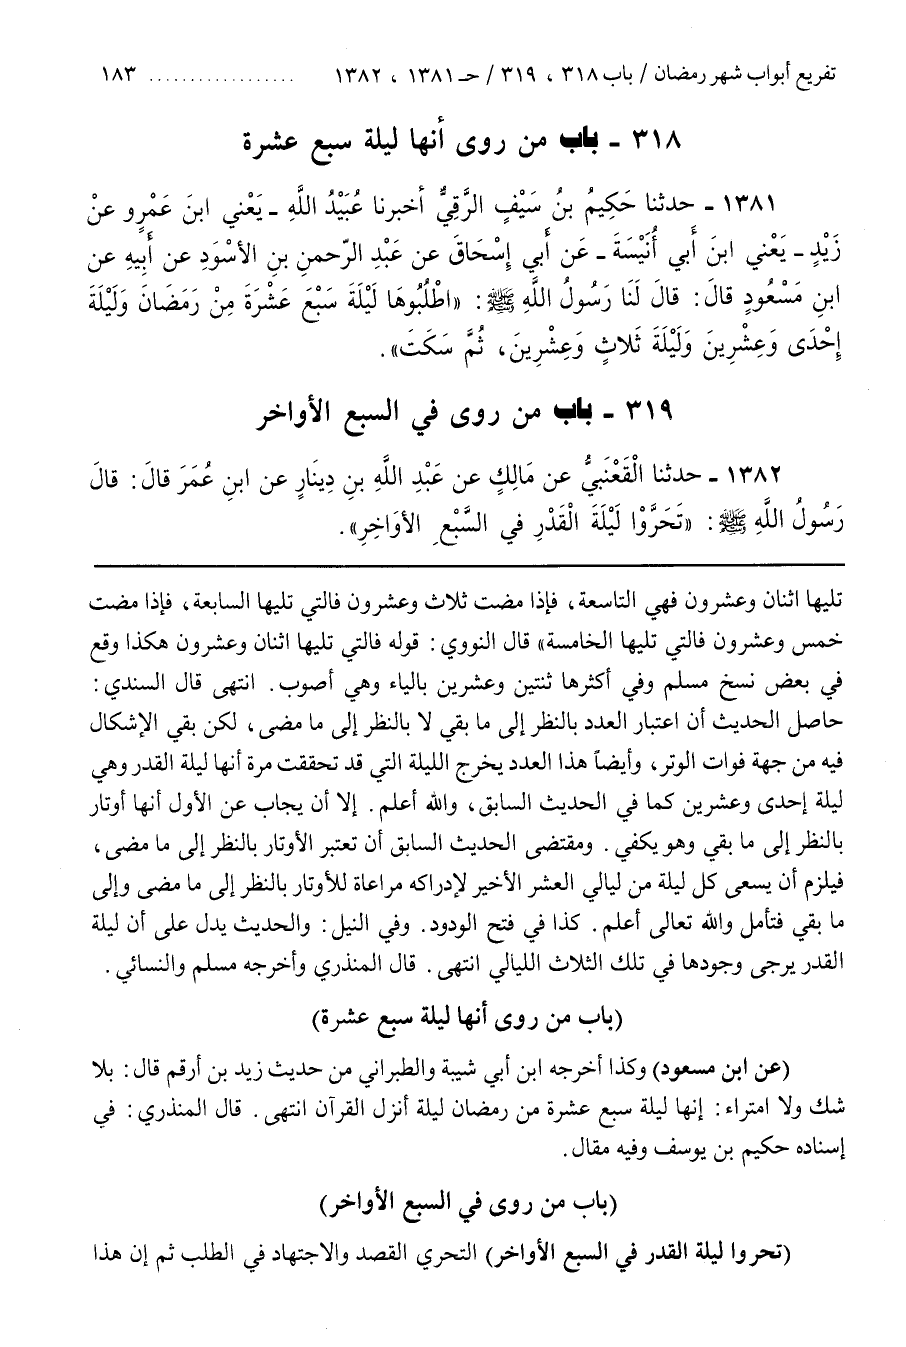 تفريع أبواب شهر رمضان / باب ٣١٨ ، ٣١٩ / حـ ١٣٨١ ، ١٣٨٢ .................. ١٨٣
٣١٨ ـ باب من روى أنها ليلة سبع عشرة
١٣٨١ ـ حدثنا حَكِيمُ بنُ سَيْفٍ الرَّقِيُّ أخبرنا عُبَيْدُ اللَّهِ ـ يَعْني ابنَ عَمْرٍو عنْ
زَيْدٍ ـ يَعْني ابنَ أَبي أُنَيْسَةَ ـ عَن أَبي إسْحَاقَ عن عَبْدِ الرّحمنِ بنِ الأسْوَدِ عن أَبيهِ عن
ابنِ مَسْعُودٍ قالَ: قالَ لَنَا رَسُولُ اللَّهِ ﷺ: «اطْلُبُوهَا لَيْلَةَ سَبْعَ عَشْرَةَ مِنْ رَمَضَانَ وَلَيْلَةَ
إحْدَى وَعِشْرِينَ وَلَيْلَةَ ثَلاثٍ وَعِشْرِينَ، ثُمَّ سَكَتَ».
٣١٩ ـ باب من روى في السبع الأواخر
١٣٨٢ ـ حدثنا الْقَعْنَبيُّ عن مَالِكٍ عن عَبْدِ اللَّهِ بنِ دِينَارٍ عن ابنِ عُمَرَ قالَ: قالَ
رَسُولُ اللَّهِ ﷺ: «تَحَرَّوْا لَيْلَةَ الْقَدْرِ في السَّبْعِ الأوَاخِرِ».
تليها اثنان وعشرون فهي التاسعة، فإذا مضت ثلاث وعشرون فالتي تليها السابعة، فإذا مضت
خمس وعشرون فالتي تليها الخامسة» قال النووي: قوله فالتي تليها اثنان وعشرون هكذا وقع
في بعض نسخ مسلم وفي أكثرها ثنتين وعشرين بالياء وهي أصوب. انتهى قال السندي:
حاصل الحديث أن اعتبار العدد بالنظر إلى ما بقي لا بالنظر إلى ما مضى، لكن بقي الإشكال
فيه من جهة فوات الوتر، وأيضاً هذا العدد يخرج الليلة التي قد تحققت مرة أنها ليلة القدر وهي
ليلة إحدى وعشرين كما في الحديث السابق، والله أعلم. إلا أن يجاب عن الأول أنها أوتار
بالنظر إلى ما بقي وهو يكفي. ومقتضى الحديث السابق أن تعتبر الأوتار بالنظر إلى ما مضى،
فيلزم أن يسعى كل ليلة من ليالي العشر الأخير لإدراكه مراعاة للأوتار بالنظر إلى ما مضى وإلى
ما بقي فتأمل والله تعالى أعلم. كذا في فتح الودود. وفي النيل: والحديث يدل على أن ليلة
القدر يرجى وجودها في تلك الثلاث الليالي انتهى. قال المنذري وأخرجه مسلم والنسائي.
(باب من روى أنها ليلة سبع عشرة)
(عن ابن مسعود) وكذا أخرجه ابن أبي شيبة والطبراني من حديث زيد بن أرقم قال: بلا
شك ولا امتراء: إنها ليلة سبع عشرة من رمضان ليلة أنزل القرآن انتهى. قال المنذري: في
إسناده حكيم بن يوسف وفيه مقال.
(باب من روى في السبع الأواخر)
(تحروا ليلة القدر في السبع الأواخر) التحري القصد والاجتهاد في الطلب ثم إن هذا